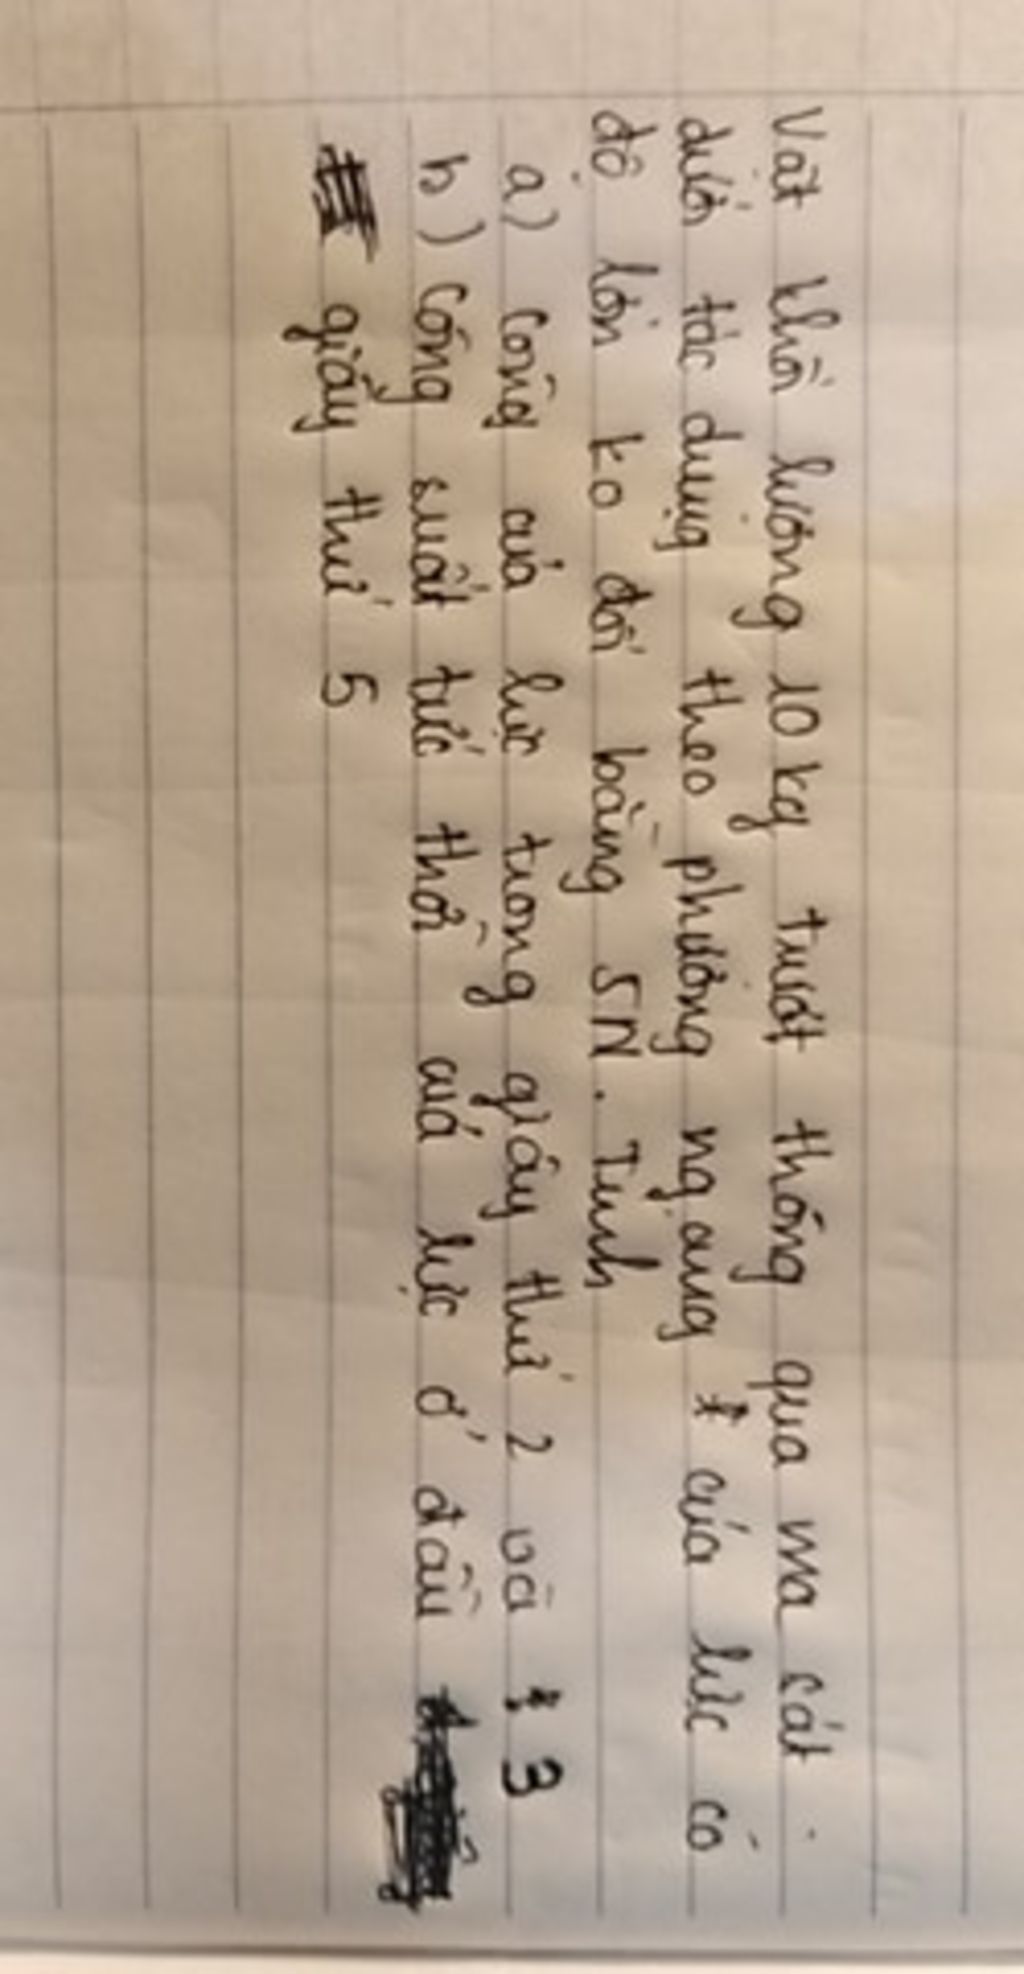 Vật khối lượng 10 kg trượt không qua ma sát
dưới tác dụng theo phương ngang của lực có
độ lớn ko đổi bằng 5N. Tính
a) công của lực trong giây thứ 2 và 3
b) Công suất tức thời của lực ở đầu
giây thứ 5